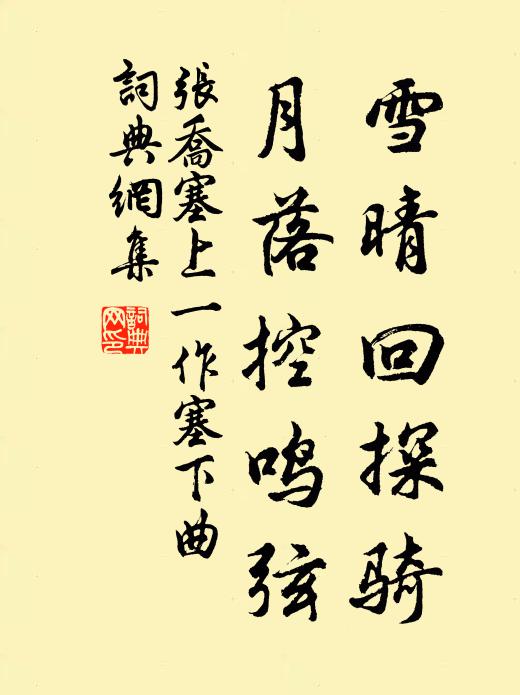 雪晴回探骑
月落控鸣弦
張喬塞上一作塞下曲
詞典網集
詞典网印